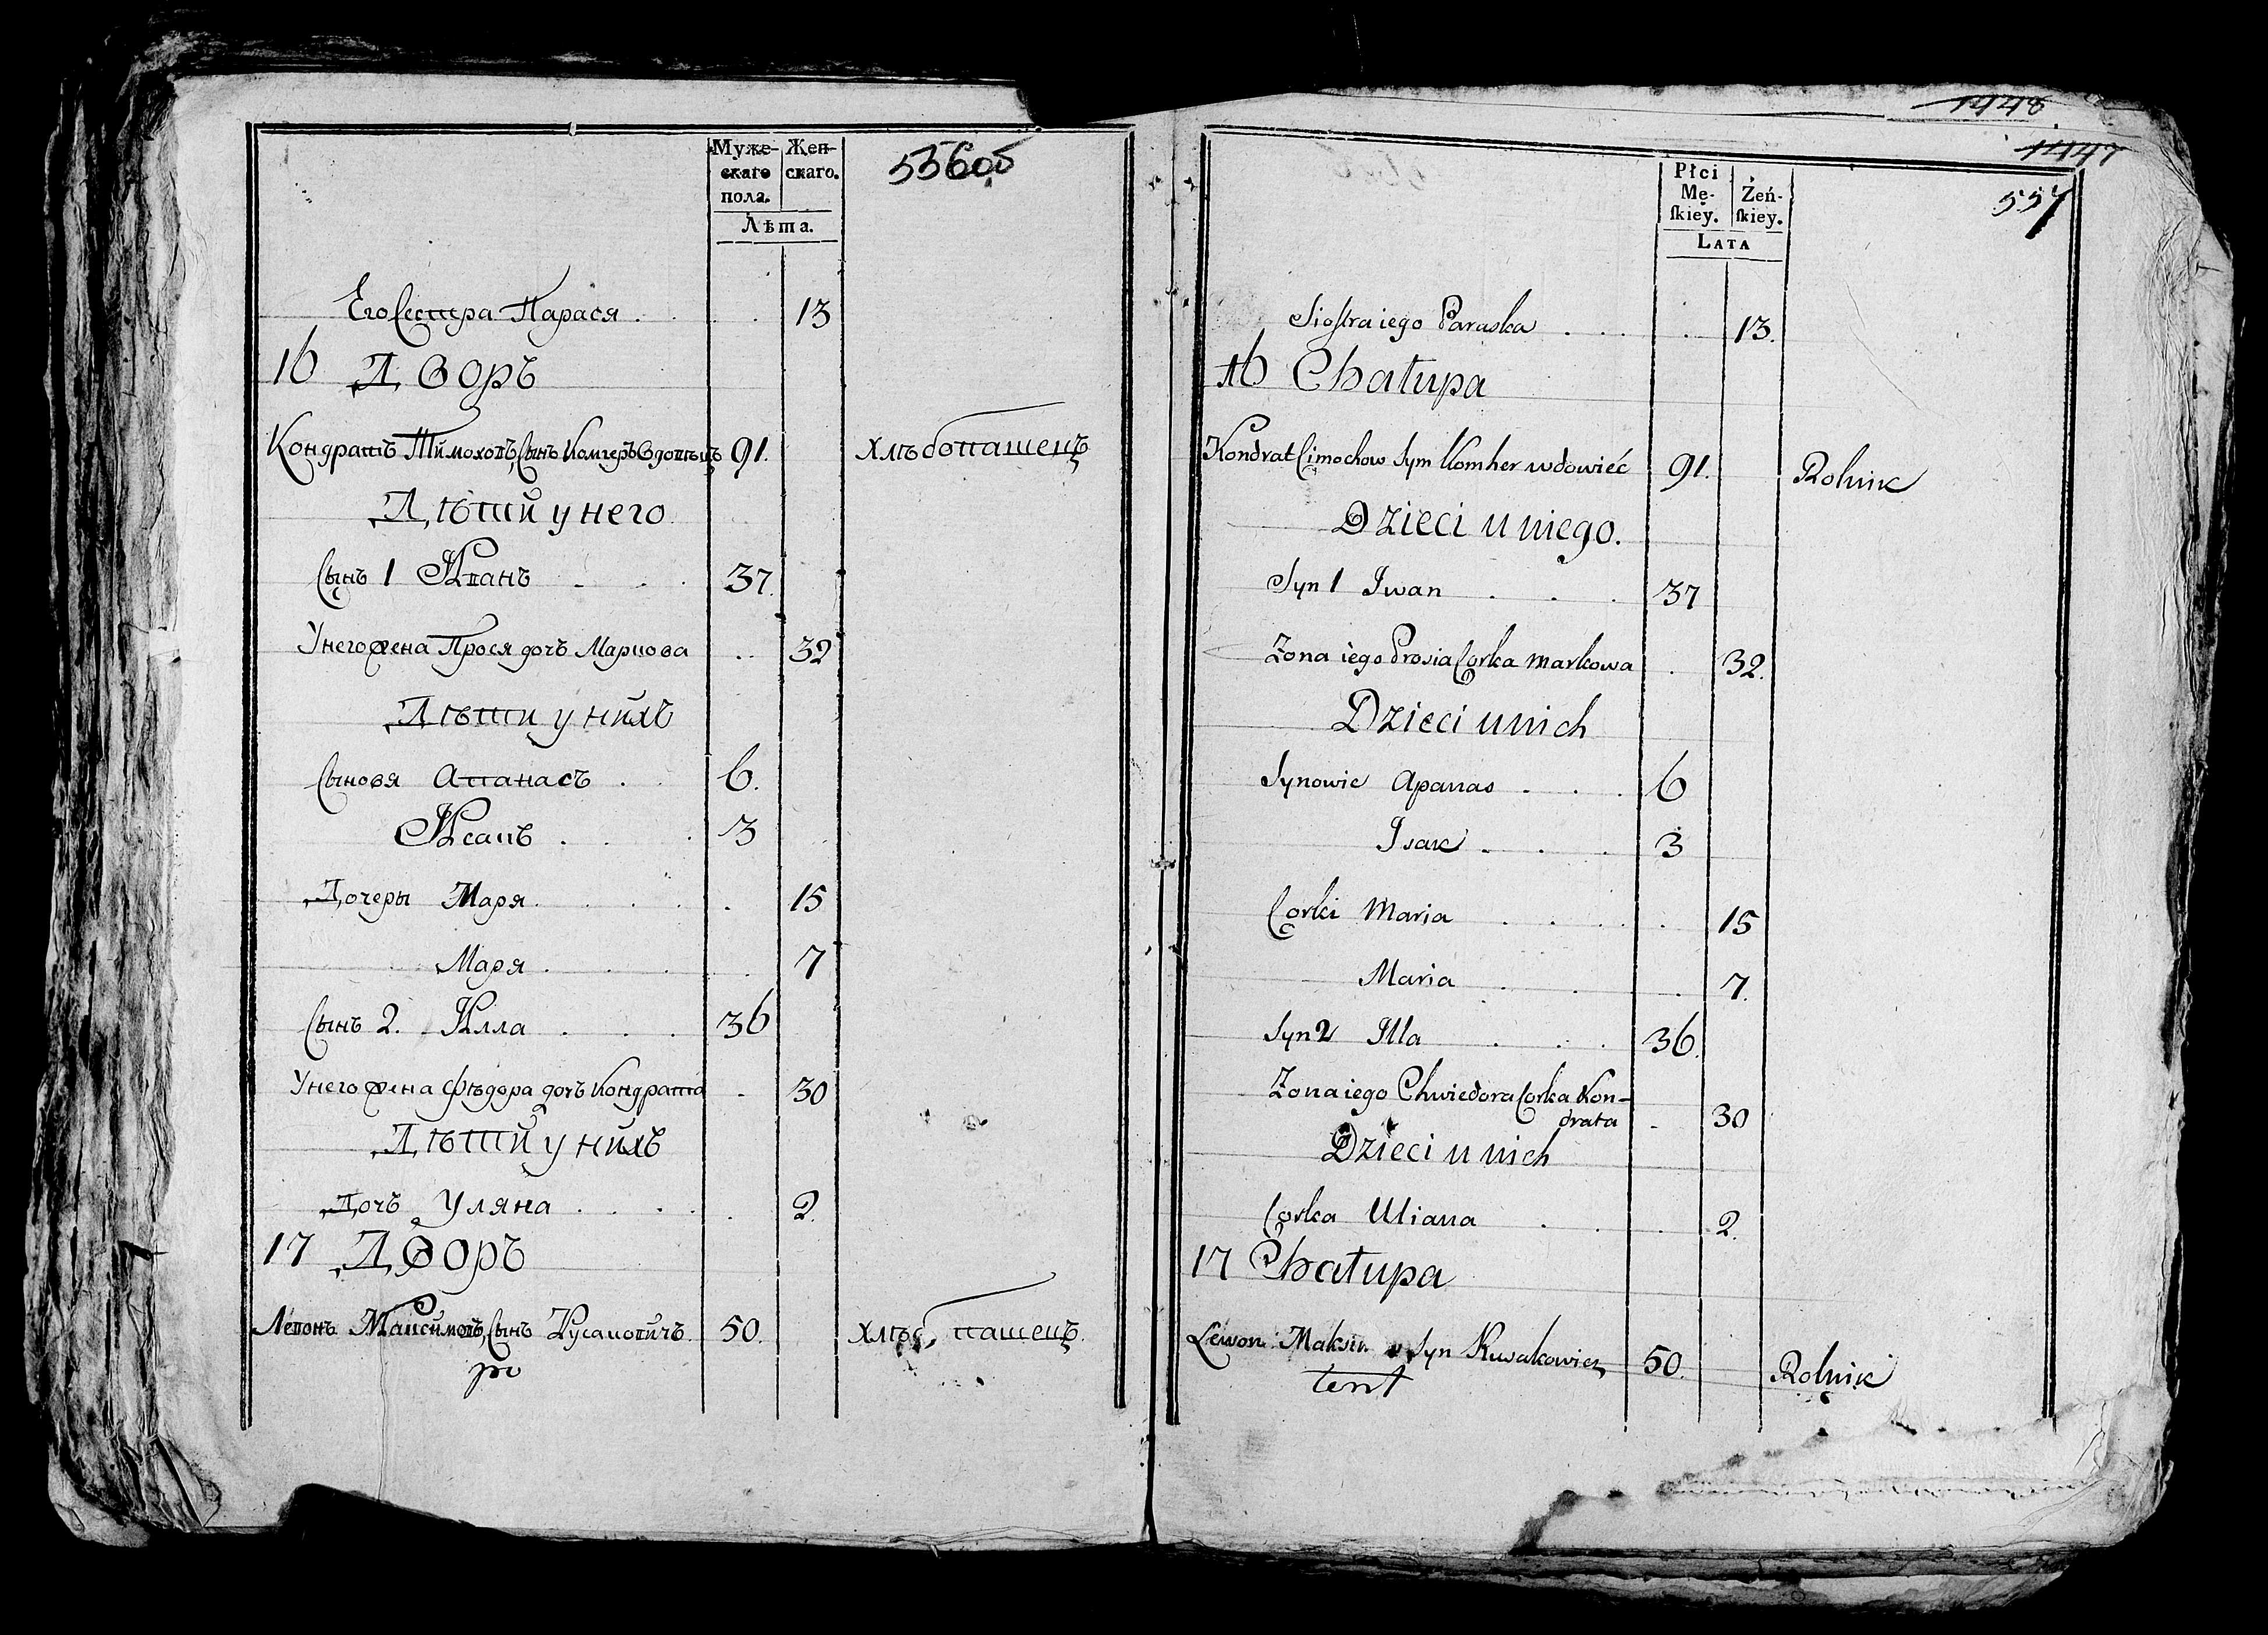 Муже-
скаго
пола.
Жен-
скаго.
Лѣта.
556об
Его Сестра Парася . . . 13
16 Дворъ
Кондратъ Тимоховъ Сынъ Комгеръ Вдовецъ 91. Хлѣбопашецъ
Дѣти у него
Сынъ 1 Иванъ . . . 37.
У него жена Прося дочъ Маркова . . 32
Дѣти у нихъ
Сыновя Апанасъ . . 6.
Исакъ . . . 3
Дочеры Маря . . . . 15
Маря . . . . 7
Сынъ 2. Илла . . . 36
У него жена Фѣдора дочъ Кондрата . 30
Дѣти у нихъ
Дочъ Уляна . . . . . 2.
17 Дворъ
Левонъ Максимовъ Сынъ Кусаковичъ 50. Хлѣб пашецъ.
1448
1447
557
Płci
Mę-
ſkiey.
Żeń-
ſkiey.
LATA
Siostra iego Paraska . . . . 13.
16 Chałupa
Kondrat Cimochow Syn Komher wdowiéc 91. Rolnik
Dzieci u niego.
Syn 1 Iwan . . . 37
Zona iego Prosia Corka Markowa . 32.
Dzieci u nich
Synowie Apanas . . . 6
Isak . . . 3
Corki Maria . . . . 15
Maria . . . 7.
Syn 2 Illa . . . 36.
Zona iego Chwiedora Corka Kon-
drata . 30
Dzieci u nich
Corka Uliana . . . 2.
17 Chałupa
Lewon Maksim Syn Kusakowicz 50. Rolnik